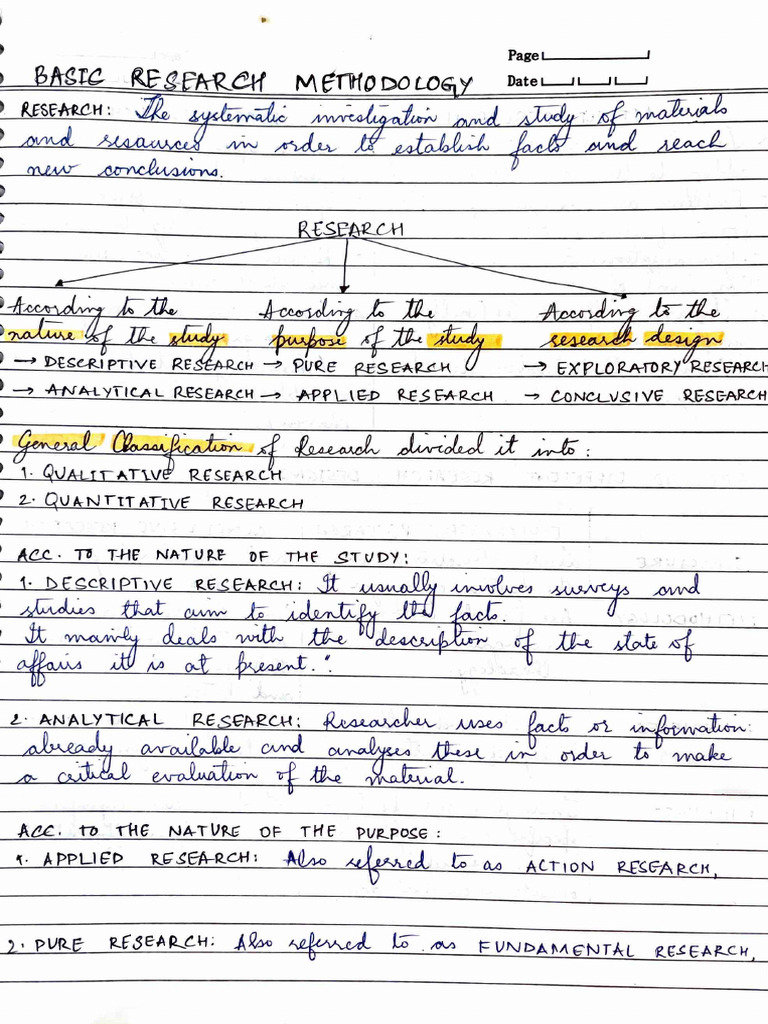 Page
BASIC RESEARCH METHODOLOGY
Date
RESEARCH: The systematic investigation and study of materials
and resources in order to establish facts and reach
new conclusions.
RESEARCH
According to the According to the According to the
nature of the study purpose of the study research design
→ DESCRIPTIVE RESEARCH → PURE RESEARCH → EXPLORATORY RESEARCH
→ ANALYTICAL RESEARCH → APPLIED RESEARCH → CONCLUSIVE RESEARCH
General Classification of Research divided it into:
1. QUALITATIVE RESEARCH
2. QUANTITATIVE RESEARCH
ACC. TO THE NATURE OF THE STUDY:
1. DESCRIPTIVE RESEARCH: It usually involves surveys and
studies that aim to identify the facts.
It mainly deals with the "description of the state of
affairs it is at present."
2. ANALYTICAL RESEARCH: Researcher uses facts or information
already available and analyses these in order to make
a critical evaluation of the material.
ACC. TO THE NATURE OF THE PURPOSE:
1. APPLIED RESEARCH: Also referred to as ACTION RESEARCH,
2. PURE RESEARCH: Also referred to as FUNDAMENTAL RESEARCH,